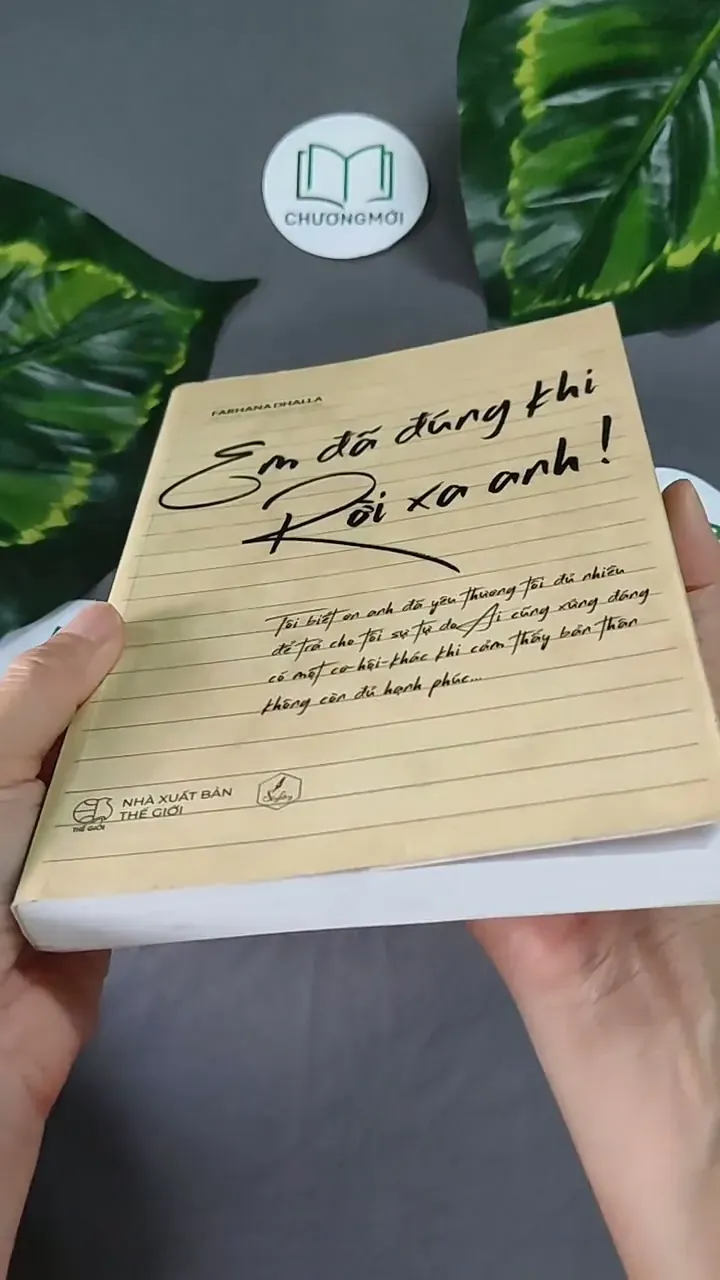 CHƯƠNGMỚI
FARHANA DHALLA
Em đã đúng khi
Rời xa anh!
Tôi biết ơn anh đã yêu thương tôi đủ nhiều
để trả cho tôi sự tự do Ai cũng xứng đáng
có một cơ hội khác khi cảm thấy bản thân
không còn đủ hạnh phúc...
NHÀ XUẤT BẢN
THẾ GIỚI
THẾ GIỚI